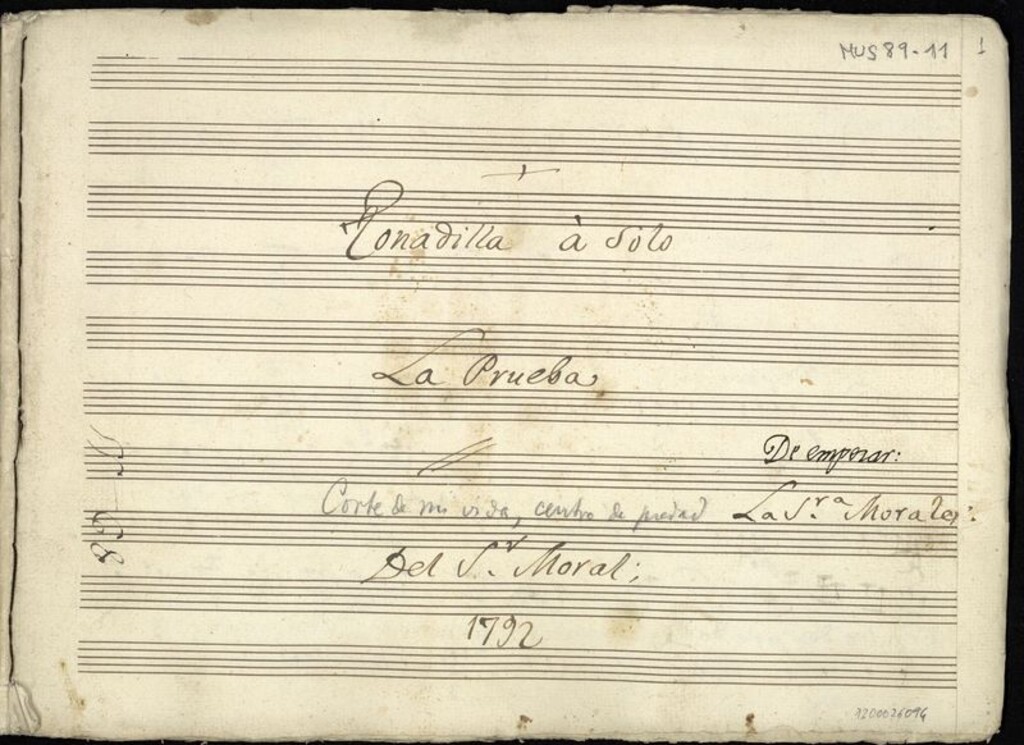 MUS 89-11
1
Tonadilla à Solo
La Prueba,
De empezar:
Corte de mi vida, centro de piedad
La S.ra Morales:
Del S.r Moral;
1792
1200026094